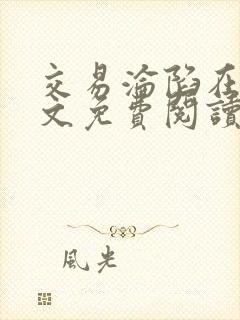 交易淪陷在
文免費閱讀
風光